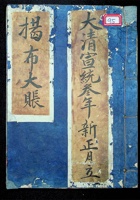 大清宣統叁年 新正月立
描布大賬